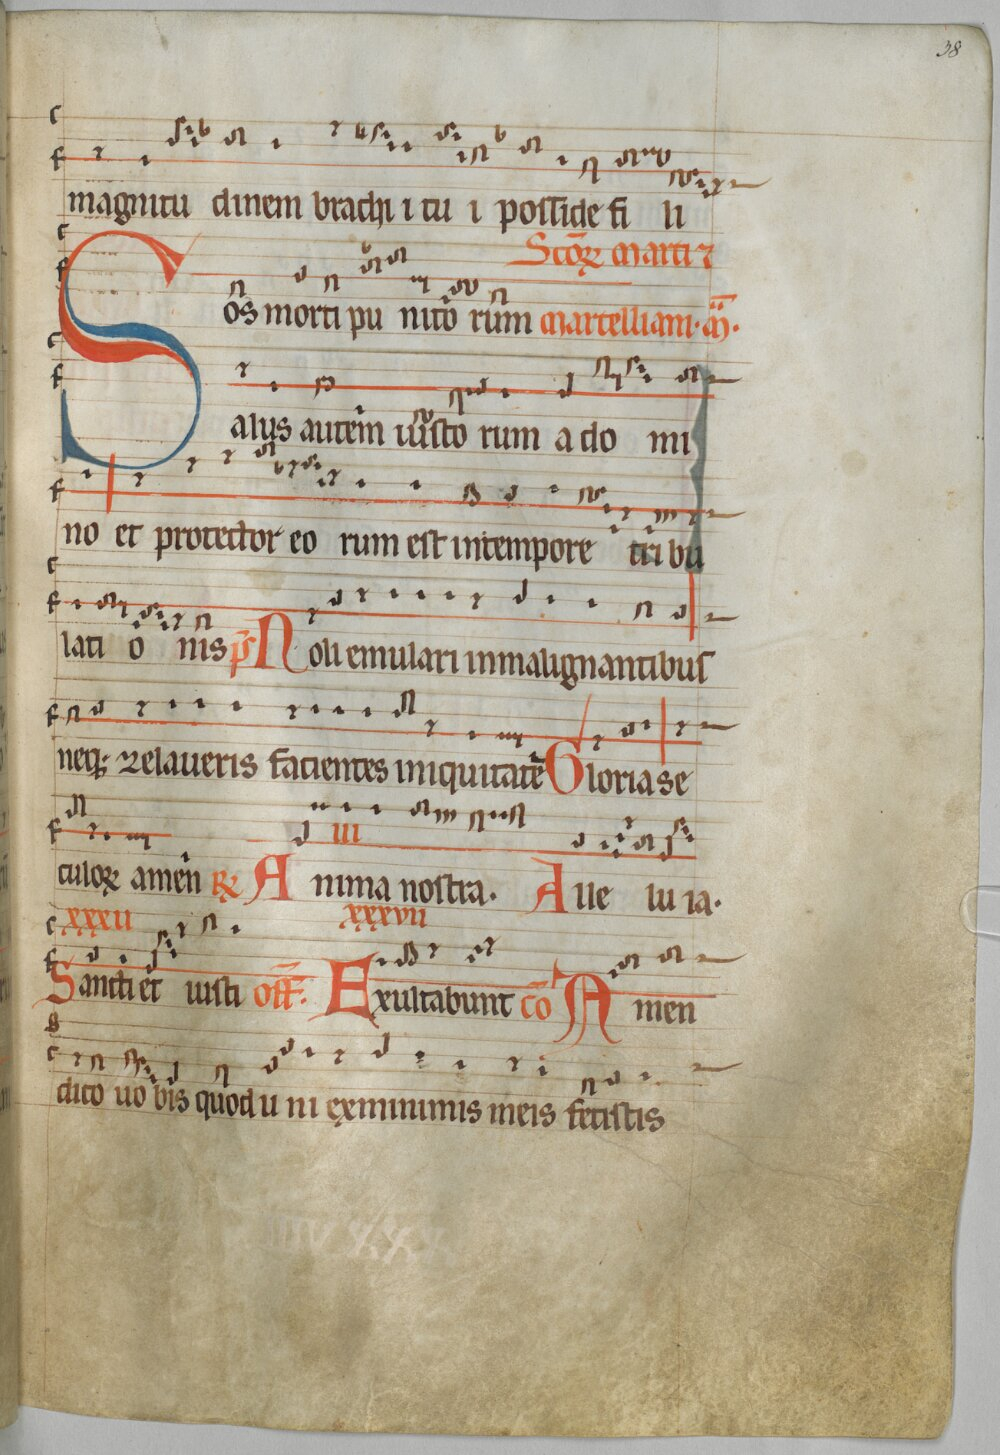 38
magnitu dinem brachi i tu i posside fi li
Scoꝝ marti ꝛ
os morti pu nito rum marcelliani· ā·
S alus autem iusto rum a do mi
no et protector eo rum est intempore tri bu
lati o nis p̄s Noli emulari inmalignantibus
neq; zelaueris facientes iniquitatē Gloria se
III
culoꝝ amen ℟ Anima nostra· Alle lu ia·
xxxii xxxvii
Sancti et iusti off̄· Exultabunt cō Amen
dico uo bis quod u ni ex minimis meis fecistis